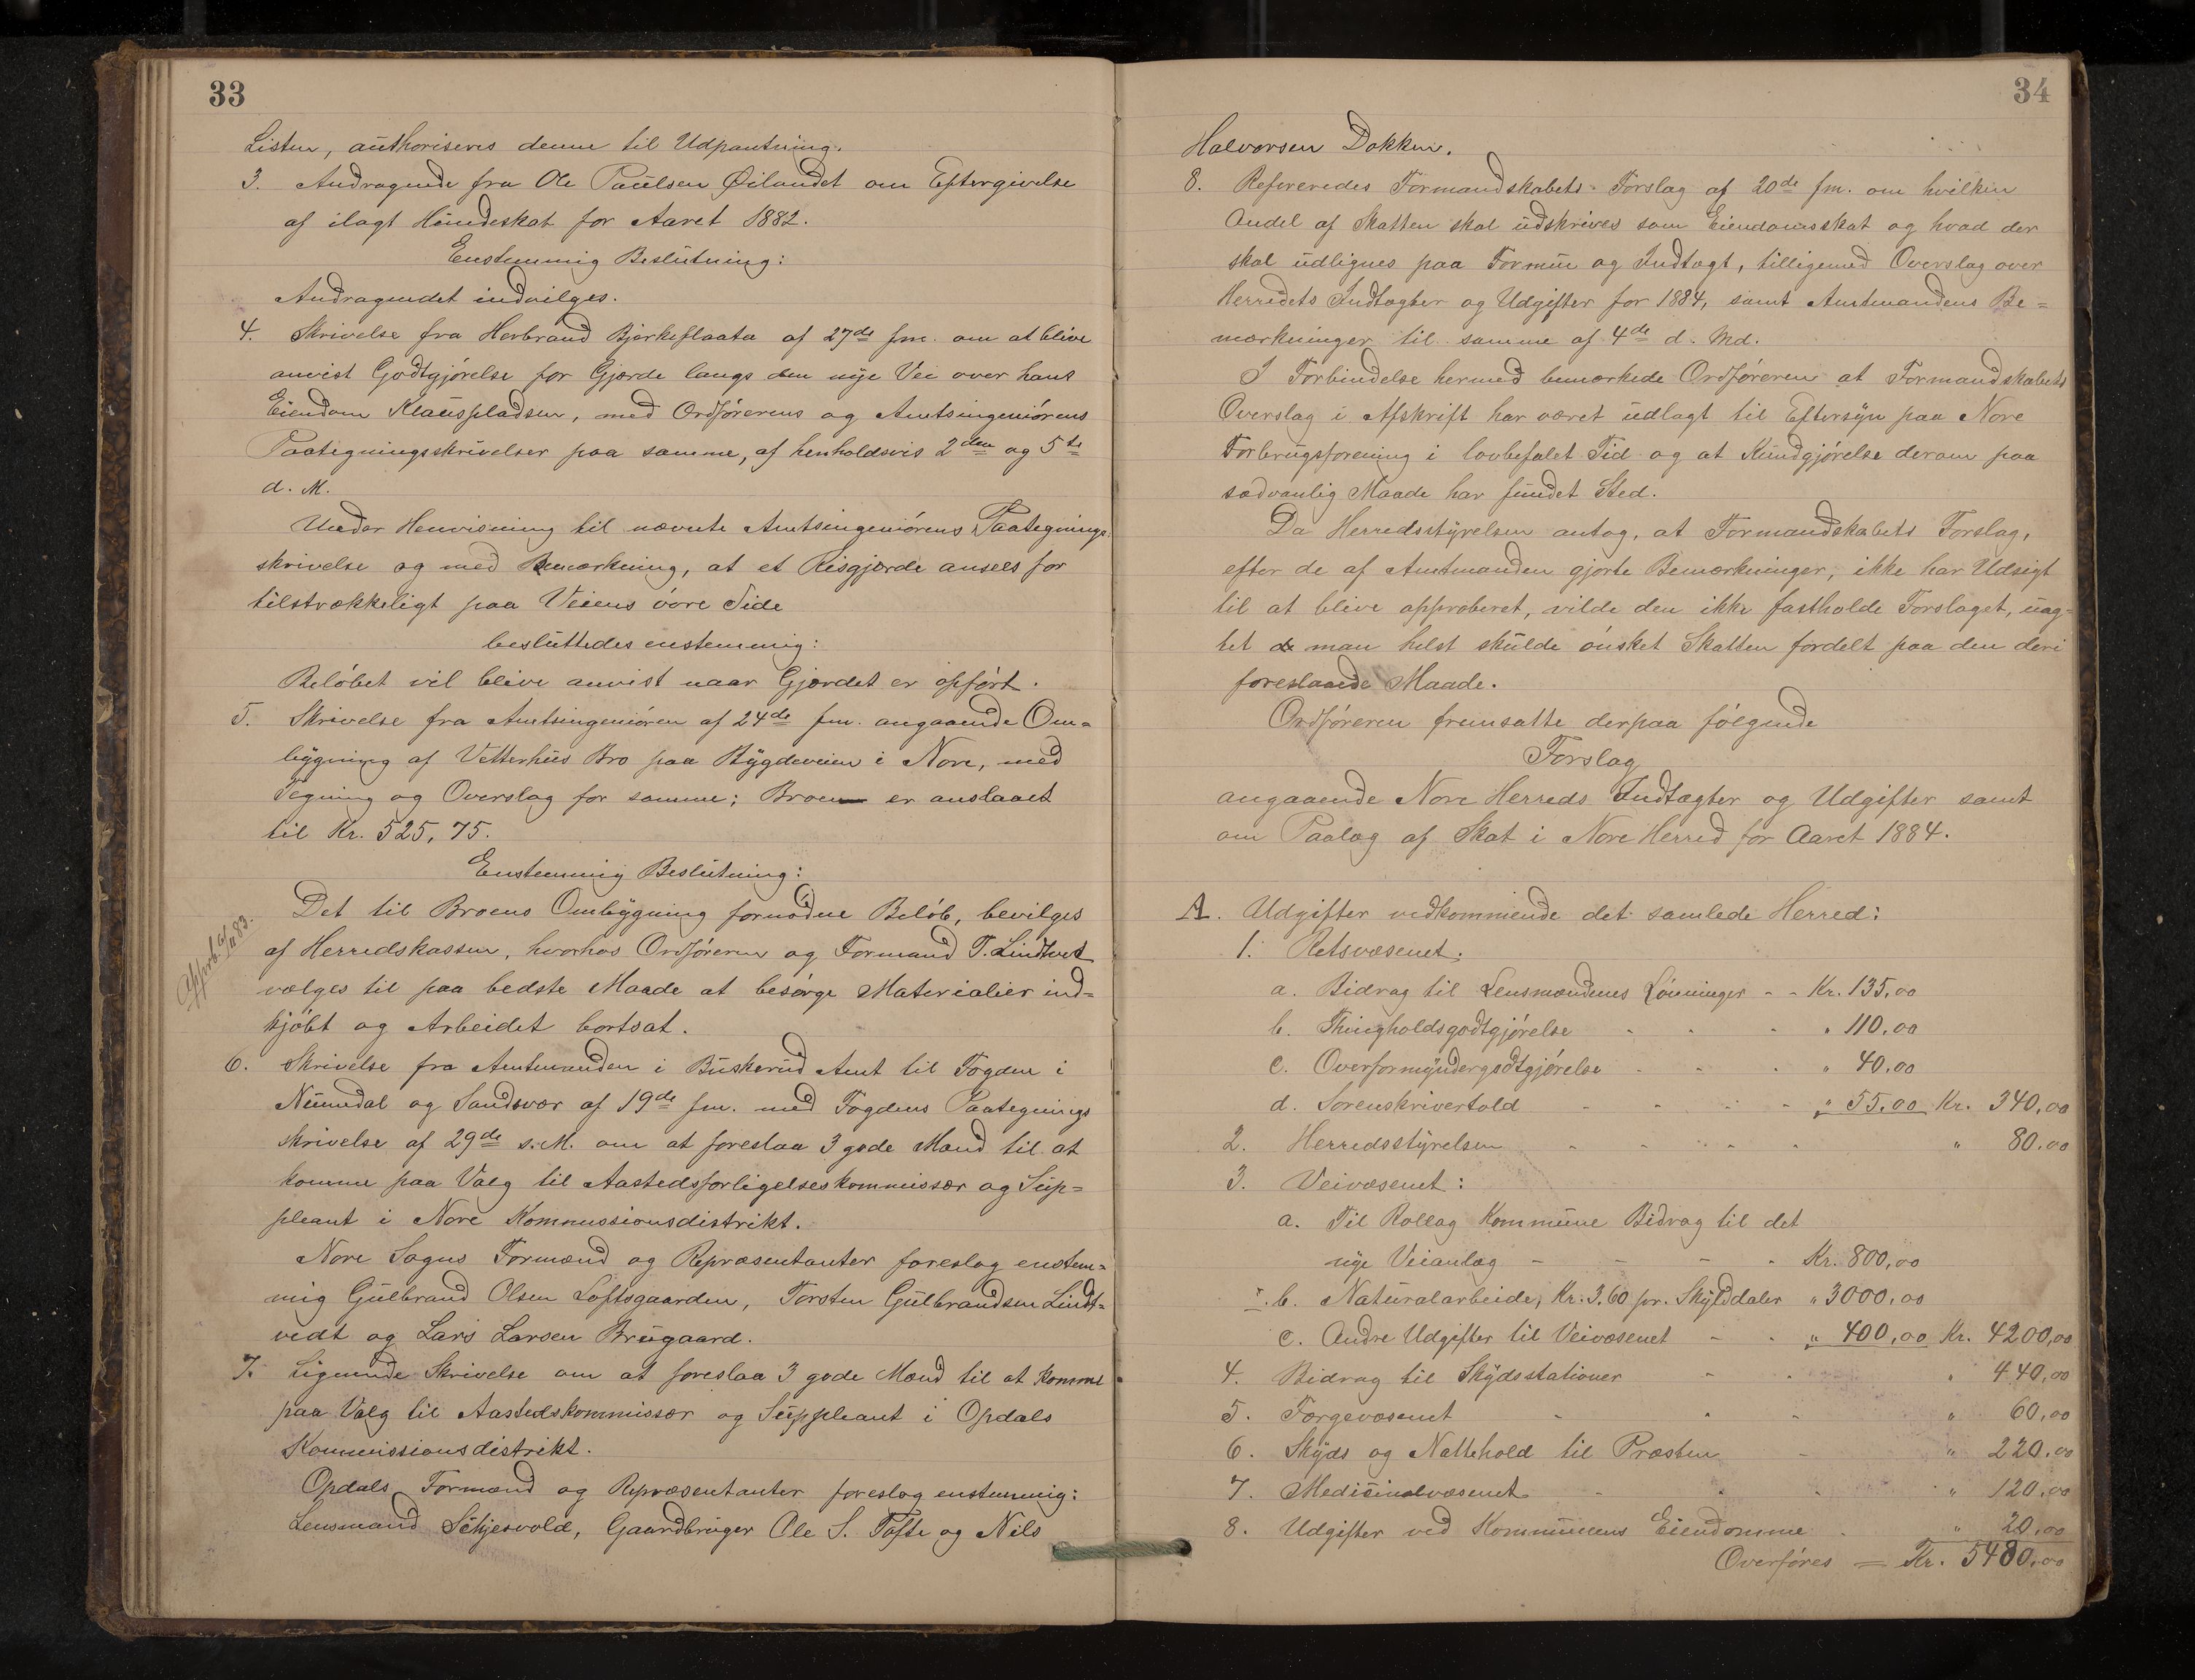 33
Listen, authoriseres denne til Udpantning.
3. Andragende fra Ole Paulsen Øilandet om Eftergivelse
af ilagt Hundeskat for Aaret 1882.
Enstemmig Beslutning:
Andragendet indvilges.
4. Skrivelse fra Herbrand Bjerkeflaata af 27de fm. om at blive
anvist Godtgjørelse for Gjerde langs den nye Vei over hans
Eiendom Klauspladsen, med Ordførerens og Amtsingeniørens
Paategningsskrivelser paa samme, af henholdsvis 2den og 5te
d. M.
Under Henvisning til nævnte Amtsingeniørens Paategnings-
skrivelse og med Bemærkning, at et Risgjerde ansees for
tilstrækkeligt paa Veiens øvre Side
besluttedes enstemmig:
Beløbet vil blive anvist naar Gjerdet er opført.
5. Skrivelse fra Amtsingeniøren af 24de fm. angaaende Om-
bygning af Vetterhus Bro paa Bygdeveien i Nore, med
Tegning og Overslag for samme; Broen er anslaaet
til Kr. 525,75.
Enstemmig Beslutning:
Det til Broens Ombygning fornødne Beløb, bevilges
af Herredskassen, hvorhos Ordføreren og Formand T. Lindtvet
vælges til paa bedste Maade at besørge Materialier ind-
kjøbt og Arbeidet bortsat.
Approb. 83.
6. Skrivelse fra Amtmanden i Buskerud Amt til Fogden i
Numedal og Sandsvær af 19de fm. med Fogdens Paategnings
skrivelse af 29de s. M. om at foreslaa 3 gode Mænd til at
komme paa Valg til Aastedsforligelseskommissær og Sup-
pleant i Nore Kommissionsdistrikt.
Nore Sogns Formænd og Repræsentanter foreslog enstem-
mig Gulbrand Olsen Loftsgaarden, Torsten Gulbrandsen Lindt-
vedt og Lars Larsen Brugaard.
7. Lignende Skrivelse om at foreslaa 3 gode Mænd til at komme
paa Valg til Aastedskommissær og Suppleant i Opdals
Kommissionsdistrikt.
Opdals Formænd og Repræsentanter foreslog enstemmig:
Lensmand Skjesvold, Gaardbruger Ole S. Tofte og Nils
34
Halvorsen Dokken.
8. Refereredes Formandskabets Forslag af 20de fm. om hvilken
Andel af Skatten skal udskrives som Eiendomsskat og hvad der
skal udlignes paa Formue og Indtægt, tilligemed Overslag over
Herredets Indtægter og Udgifter for 1884, samt Amtmandens Be-
mærkninger til samme af 4de d. Md.
I Forbindelse hermed bemærkede Ordføreren at Formandskabets
Overslag i Afskrift har været udlagt til Eftersyn paa Nore
Forbrugsforening i lovbefalet Tid og at Kundgjørelse derom paa
sædvanlig Maade har fundet Sted.
Da Herredsstyrelsen antog, at Formandskabets Forslag,
efter de af Amtmanden gjorte Bemærkninger, ikke har Udsigt
til at blive approberet, vilde den ikke fastholde Forslaget, uag-
tet man helst skulde ønsket Skatten fordelt paa den deri
foreslaaede Maade.
Ordføreren fremsatte derpaa følgende
Forslag
angaaende Nore Herreds Indtægter og Udgifter samt
om Paalæg af Skat i Nore Herred for Aaret 1884.
A. Udgifter vedkommende det samlede Herred:
1. Retsvæsenet:
a. Bidrag til Lensmændenes Lønninger - - Kr. 135,00
b. Thingholdsgodtgjørelse - - - " 110,00
c. Overformyndergodtgjørelse - - - " 40,00
d. Sorenskrivertold - - - - " 55,00 Kr. 340,00
2. Herredsstyrelsen - - - - " 80,00
3. Veivæsenet:
a. Til Rollag Kommune Bidrag til det
nye Veianlæg - - - - Kr. 800,00
b. Naturalarbeide, Kr. 3,60 pr. Skylddaler " 3000,00
c. Andre Udgifter til Veivæsenet - - " 400,00 Kr. 4200,00
4. Bidrag til Skydsstationer - - " 440,00
5. Færgevæsenet - - - " 60,00
6. Skyds og Nattehold til Præsten - " 220,00
7. Medicinalvæsenet - - - " 120,00
8. Udgifter ved Kommunens Eiendomme - " 20,00
Overføres = Kr. 5480,00